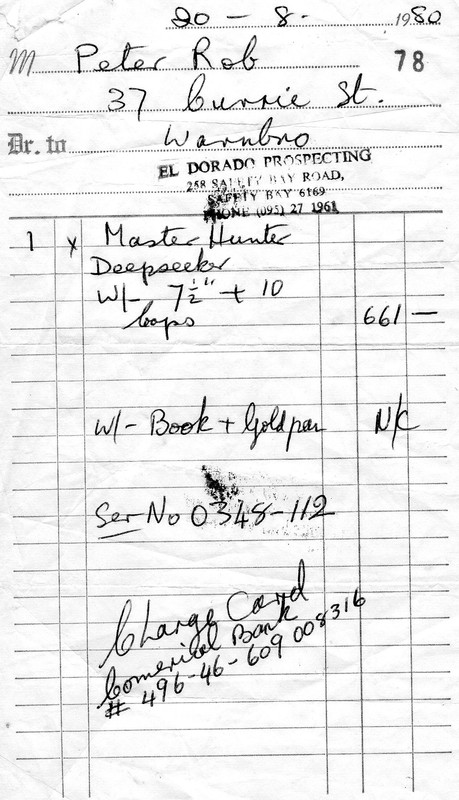 20 - 8. 1980
M Peter Rob 78
37 Currie St.
Dr. to Warnbro
EL DORADO PROSPECTING
258 SAFETY BAY ROAD,
SAFETY BAY 6169
PHONE (095) 27 1961
1 x Master Hunter
Deepseeker
W/- 7½" + 10
loops 661 —
W/- Book + Goldpan N/C
Ser No 0348-112
Charge Card
Comerical Bank
# 496-46-609 008316